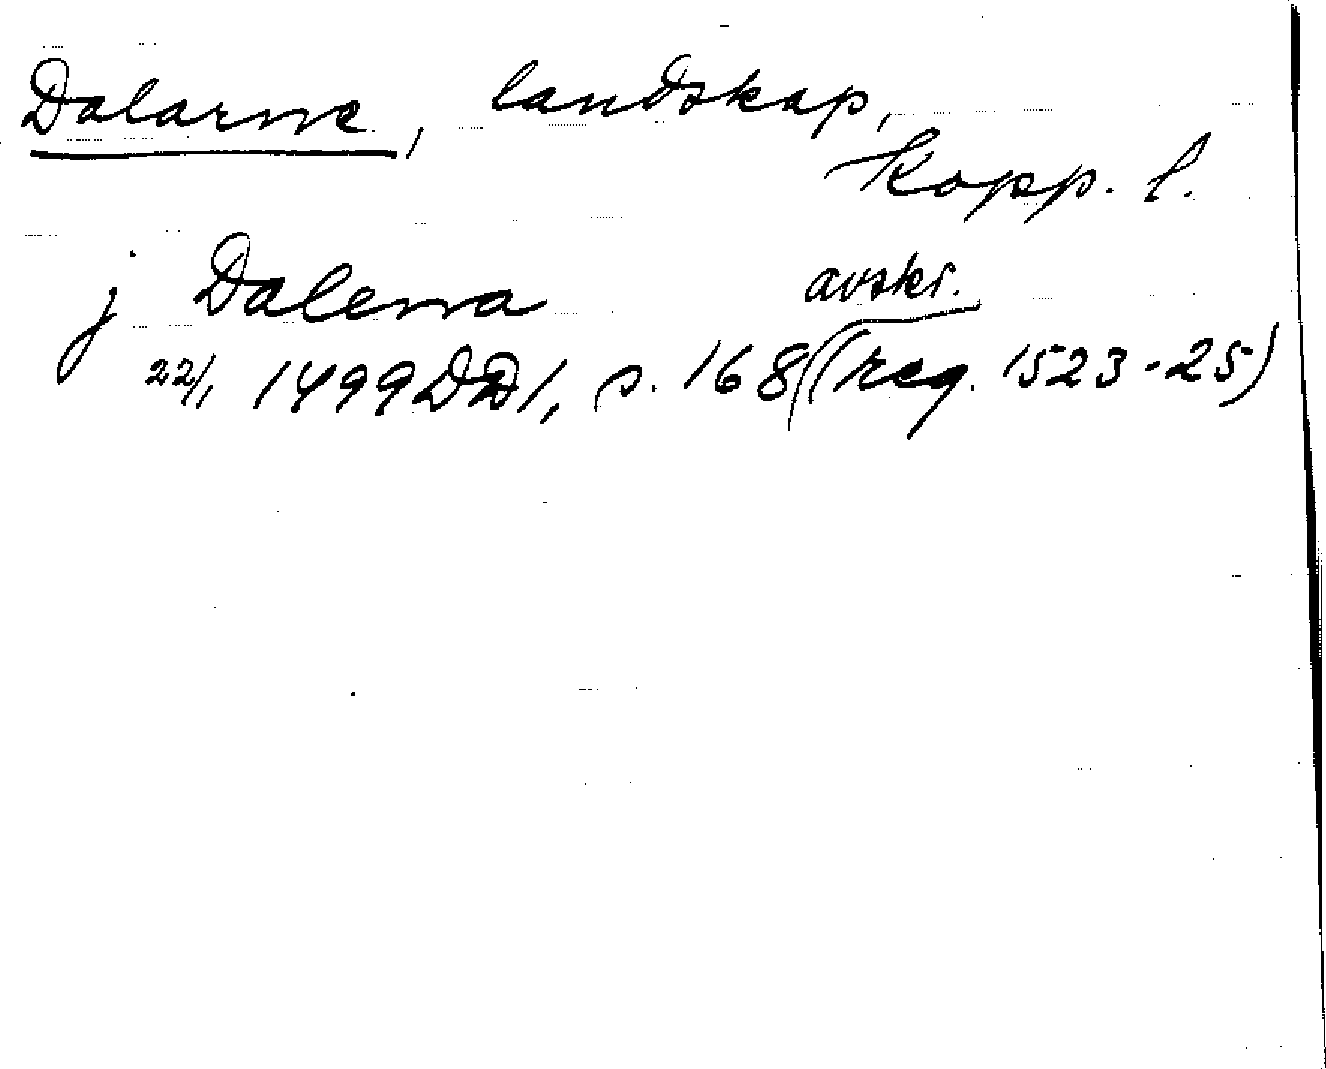 Dalarne, landskap,
Kopp. l.
j Dalerna
avskr.
22/1 1499 DD 1, s. 168 (reg. 1523-25)